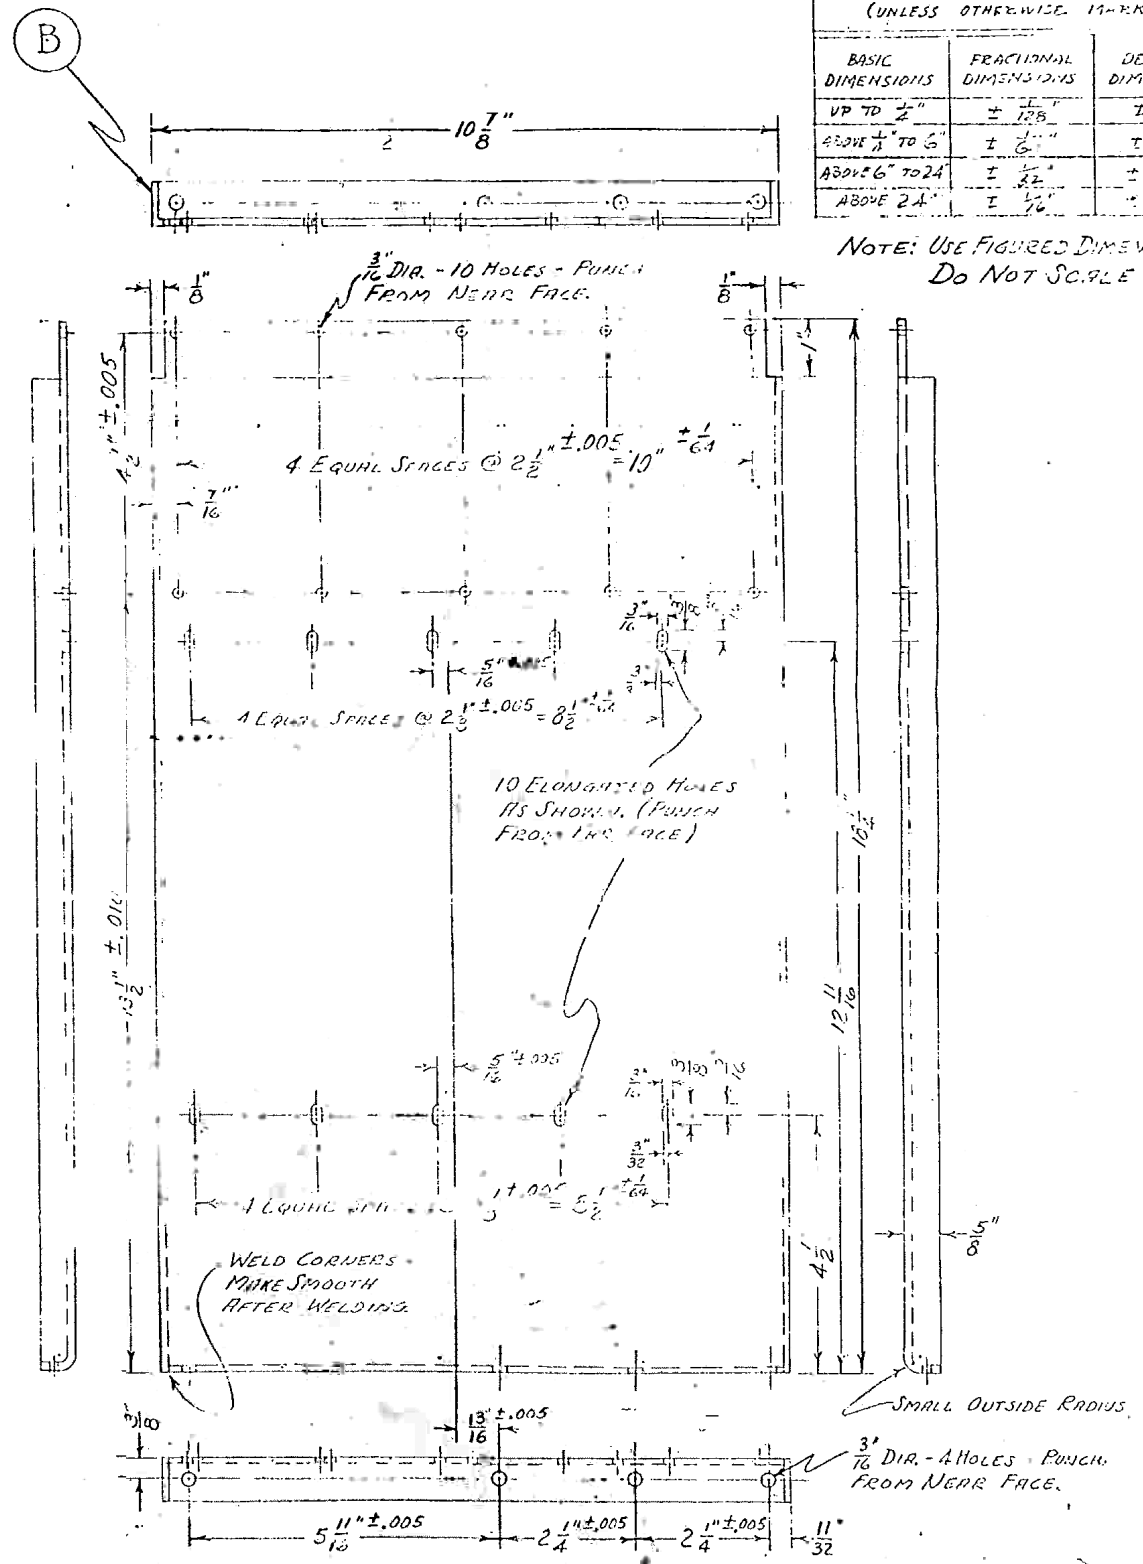 B
(UNLESS OTHERWISE
BASIC DIMENSIONS
FRACTIONAL DIMENSIONS
UP TO 1/4" ± 1/128"
ABOVE 1/4" TO 6" ±
ABOVE 6" TO 24" ± 1/32"
ABOVE 24" ± 1/16"
NOTE: USE FIGURED
DO NOT SCALE
10 7/8"
3/16" DIA. - 10 HOLES - PUNCH
FROM NEAR FACE.
1/8"
1/8"
1"
4 1/2" ±.005
4 EQUAL SPACES @ 2 1/2" ±.005 = 10" ± 1/64
7/16"
3/16"
3/8
5/16"
EQUAL SPACES @ 2 1/8" ±.005 = 8 1/2" ± 1/64
10 ELONGATED HOLES
AS SHOWN. (PUNCH
FROM FACE)
13 1/2" ±
12 11/16
5/16" ±.005
3/16"
3/8
3/32"
EQUAL ±.005 = 8 1/2 ± 1/64
4 1/2
5/8"
WELD CORNERS
MAKE SMOOTH
AFTER WELDING.
SMALL OUTSIDE RADIUS.
13/16" ±.005
3/16" DIA. - 4 HOLES - PUNCH
FROM NEAR FACE.
5 11/16" ±.005
2 1/4" ±.005
2 1/4" ±.005
11/32"